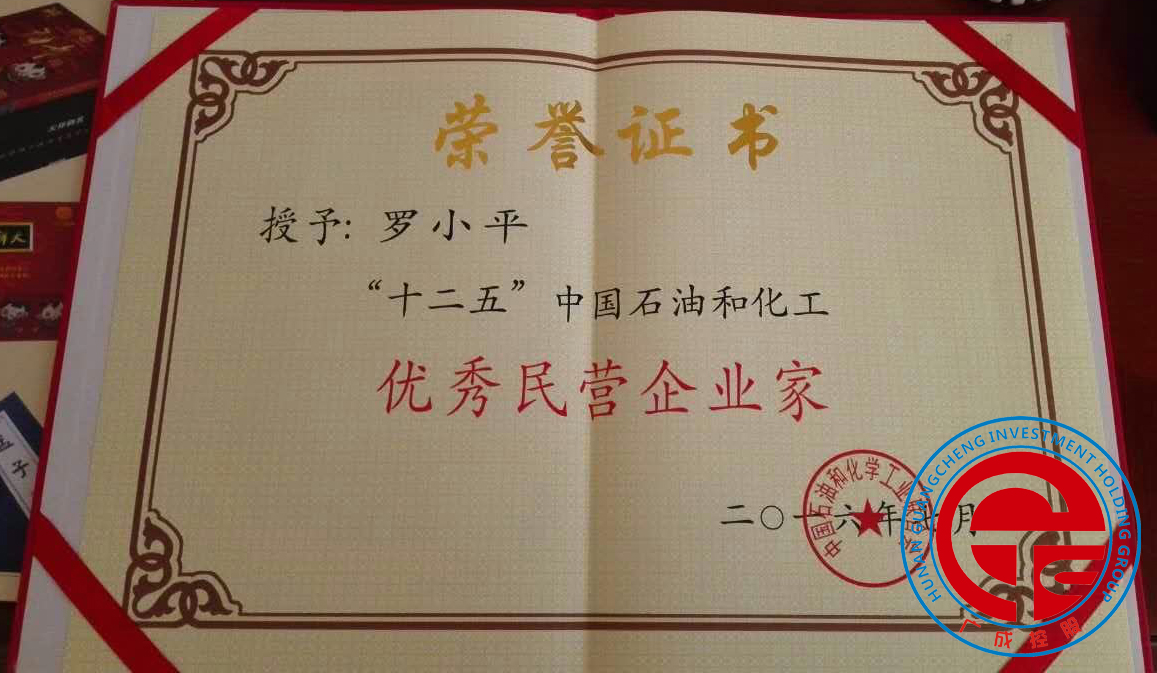 荣誉证书
授予: 罗小平
“十二五”中国石油和化工
优秀民营企业家
二〇一六年七月
中国石油和化学工业
HUNAN GUANGCHENG INVESTMENT HOLDING GROUP
广成控股
孟子